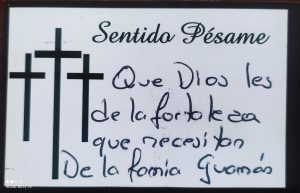 Sentido Pésame
Que Dios les
de la fortaleza
que necesitan
De la famia Guamás